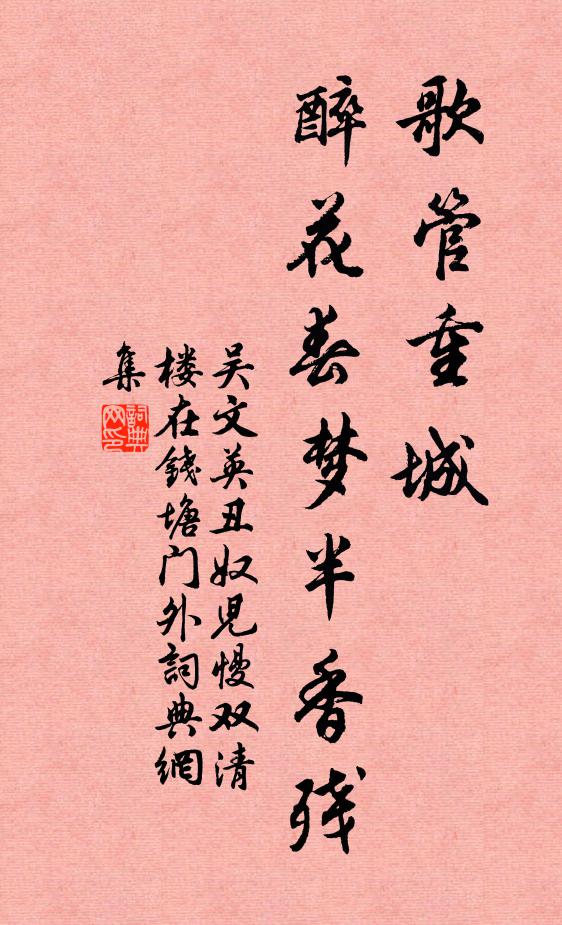 歌管重城
醉花春梦半香残
吴文英丑奴児慢双清
楼在錢塘门外詞典網
集
詞典网印